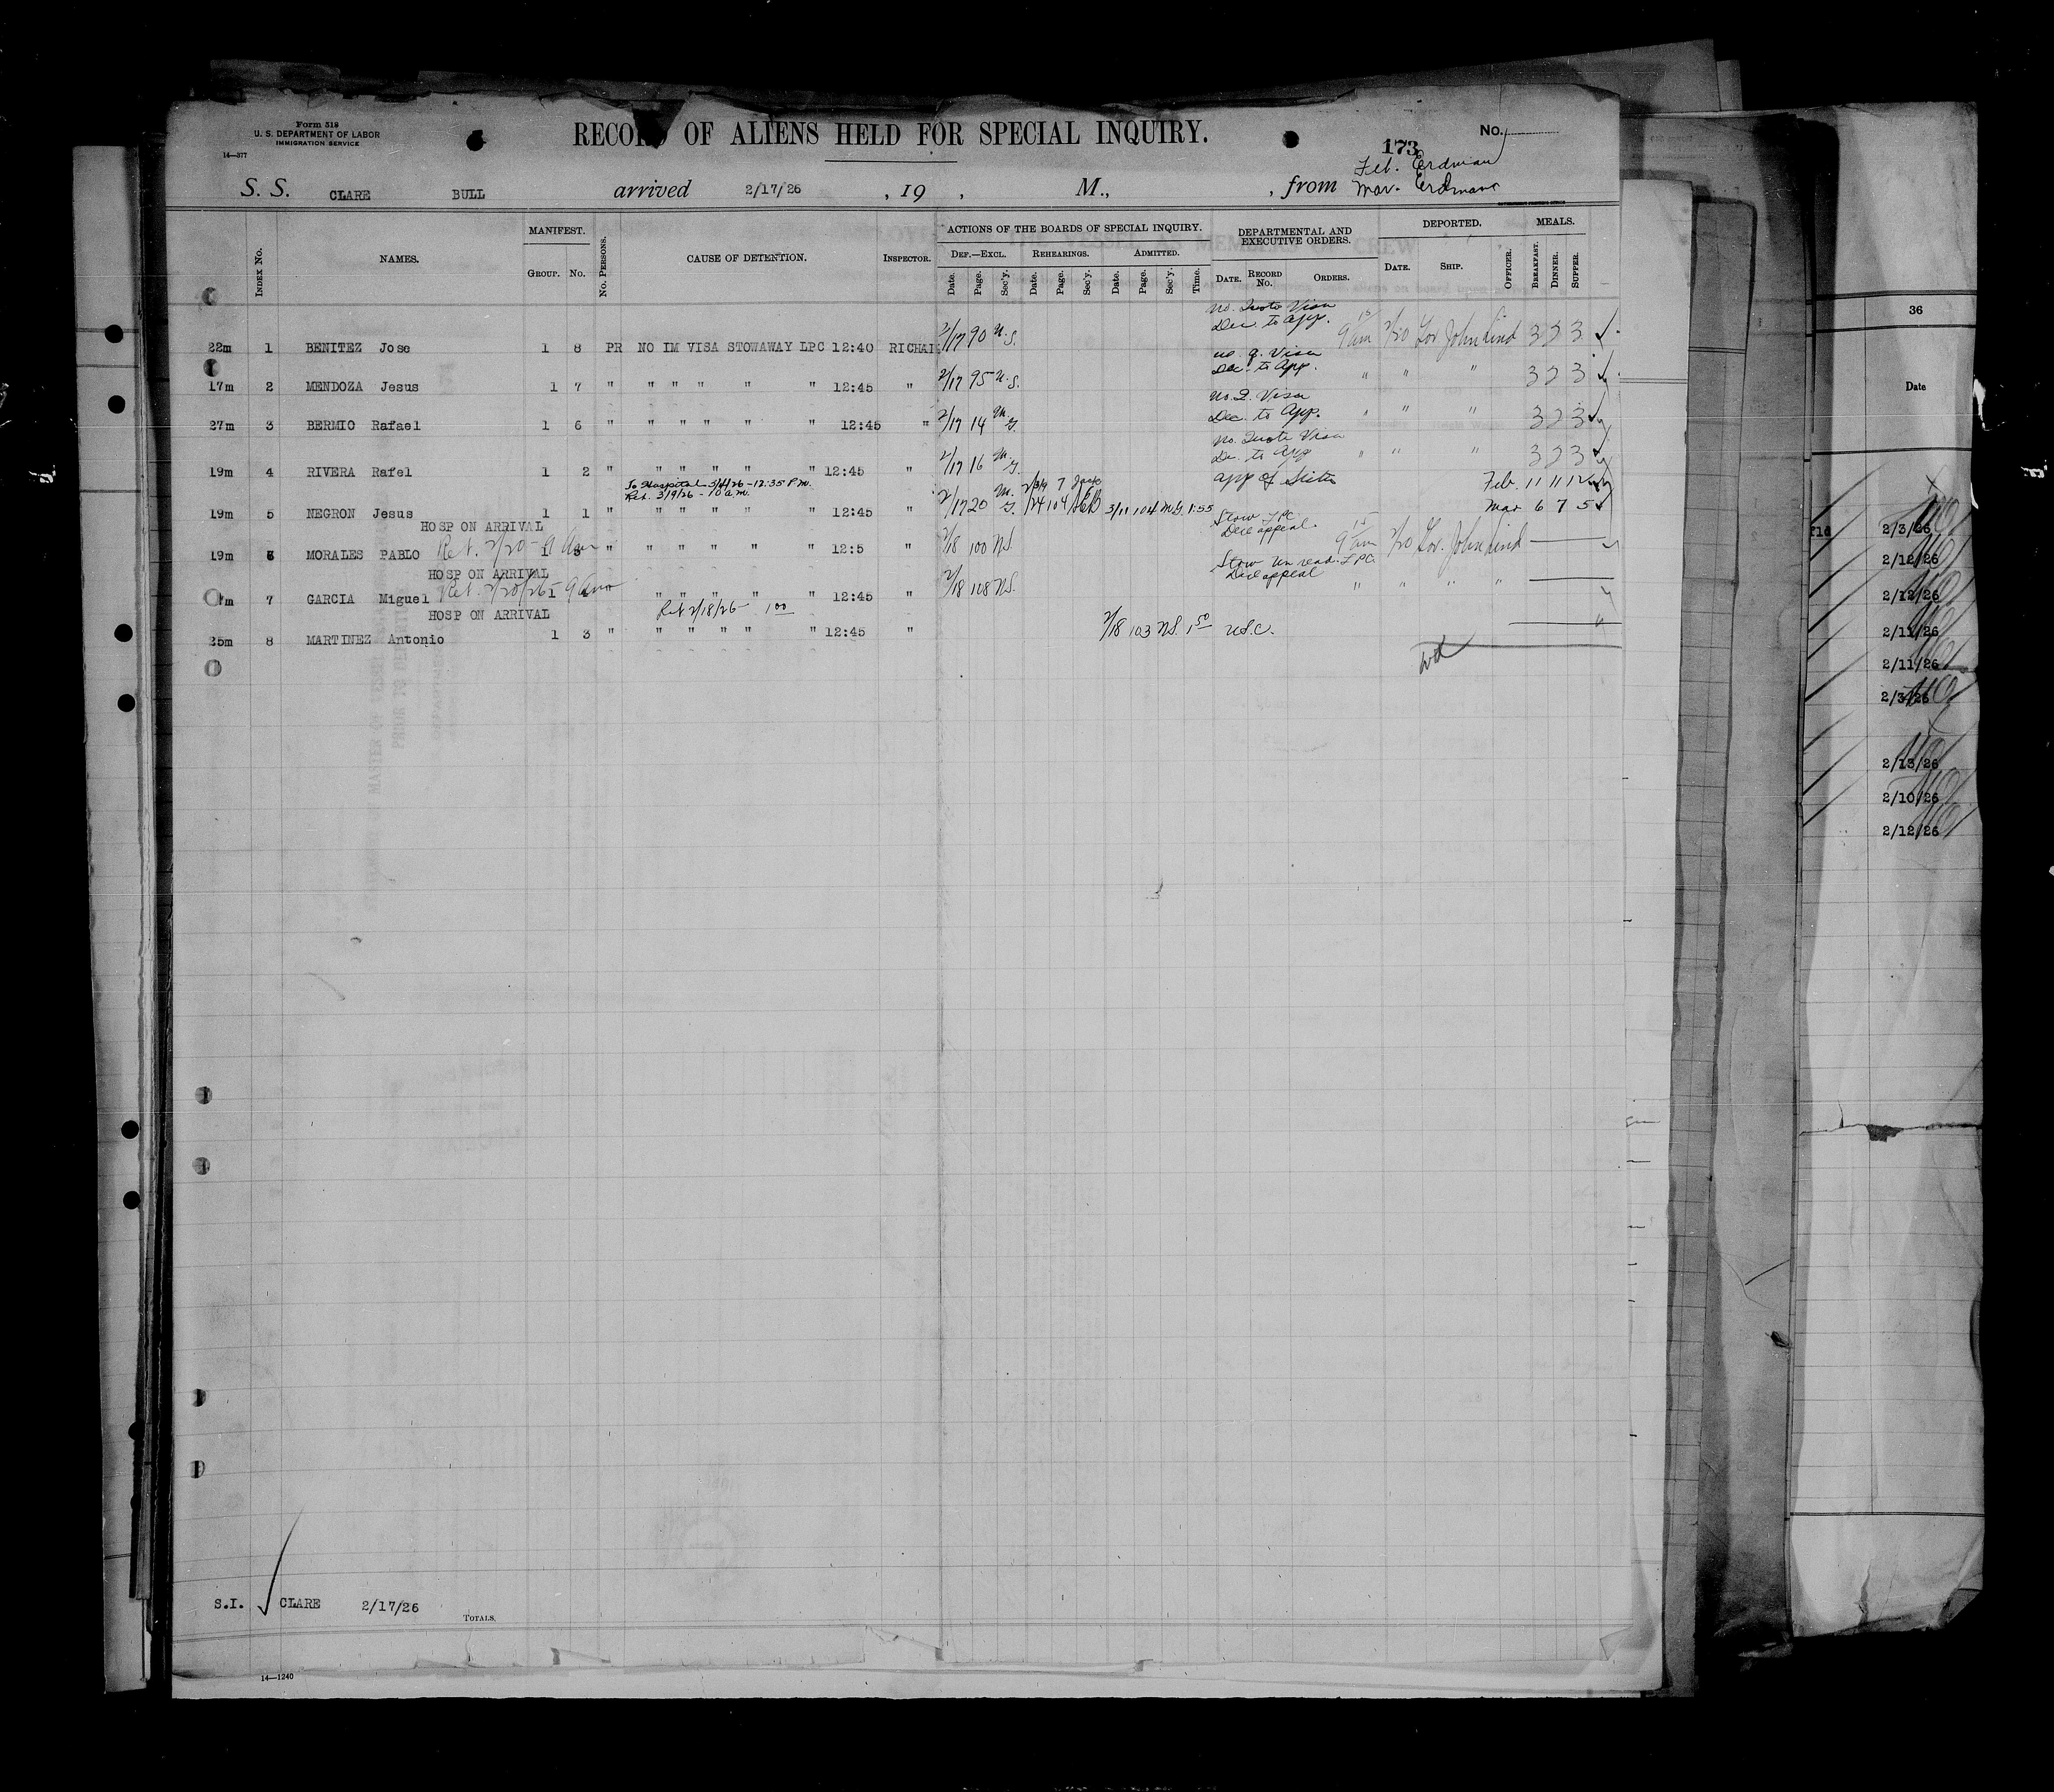 Form 318
U. S. DEPARTMENT OF LABOR
IMMIGRATION SERVICE
14—377
RECORD OF ALIENS HELD FOR SPECIAL INQUIRY.
No.
173
Feb. Erdman
Mar. Erdmann
S. S. CLARE BULL arrived 2/17/26 , 19 , M., , from
INDEX No. NAMES. MANIFEST. GROUP. No. No. PERSONS. CAUSE OF DETENTION. INSPECTOR.
ACTIONS OF THE BOARDS OF SPECIAL INQUIRY.
DEF.—EXCL. Date. Page. Sec'y. REHEARINGS. Date. Page. Sec'y. ADMITTED. Date. Page. Sec'y. Time.
DEPARTMENTAL AND EXECUTIVE ORDERS. DATE. RECORD No. ORDERS.
DEPORTED. DATE. SHIP. OFFICER.
MEALS. BREAKFAST. DINNER. SUPPER.
No. Quota Visa
Dec. to App.
22m 1 BENITEZ Jose 1 8 PR NO IM VISA STOWAWAY LPC 12:40 RICHAR 2/17 90 N.S. 9 15 am 2/20 Gov. John Lind 3 3 3
no. q. Visa
Dec. to App.
17m 2 MENDOZA Jesus 1 7 " " " " " " 12:45 " 2/17 95 N.S. " " " 3 3 3
No. Q. Visa
Dec. to App.
27m 3 BERMIO Rafael 1 6 " " " " " " 12:45 " 2/17 14 M.G. " " " 3 3 3
No. Quota Visa
De. to App
19m 4 RIVERA Rafel 1 2 " " " " " " 12:45 " 2/17 16 M.G. " " " 3 3 3
To Hospital 3/4/26 - 12:35 P.M.
Ret. 3/9/26 - 10 a.m.
app of Sister Feb. 11 11 12
19m 5 NEGRON Jesus 1 1 " " " " " " 12:45 " 2/17 20 M.G. 2/24 104 3/11 104 M.G. 1:55 Mar 6 7 5
HOSP ON ARRIVAL
Ret. 2/20 - 9 am
Stow LPC
Decl appeal.
19m 6 MORALES PABLO 1 " " " " " " 12:5 " 2/18 100 N.S. 9 15 am 2/20 Gov. John Lind
HOSP ON ARRIVAL
Ret. 2/20/26 9 am
Stow Un read. LPC.
Decl appeal
m 7 GARCIA Miguel 1 " " " " " 12:45 " 2/18 108 N.S. " " " "
HOSP ON ARRIVAL
Ret 2/18/26 - 1 00
25m 8 MARTINEZ Antonio 1 3 " " " " " " 12:45 " 2/18 103 N.S. 1 50 U.S.C.
S.I. CLARE 2/17/26
TOTALS.
14—1240
36
Date
fld 2/3/26
2/12/26
2/12/26
2/11/26
2/11/26
2/3/26
2/13/26
2/10/26
2/12/26